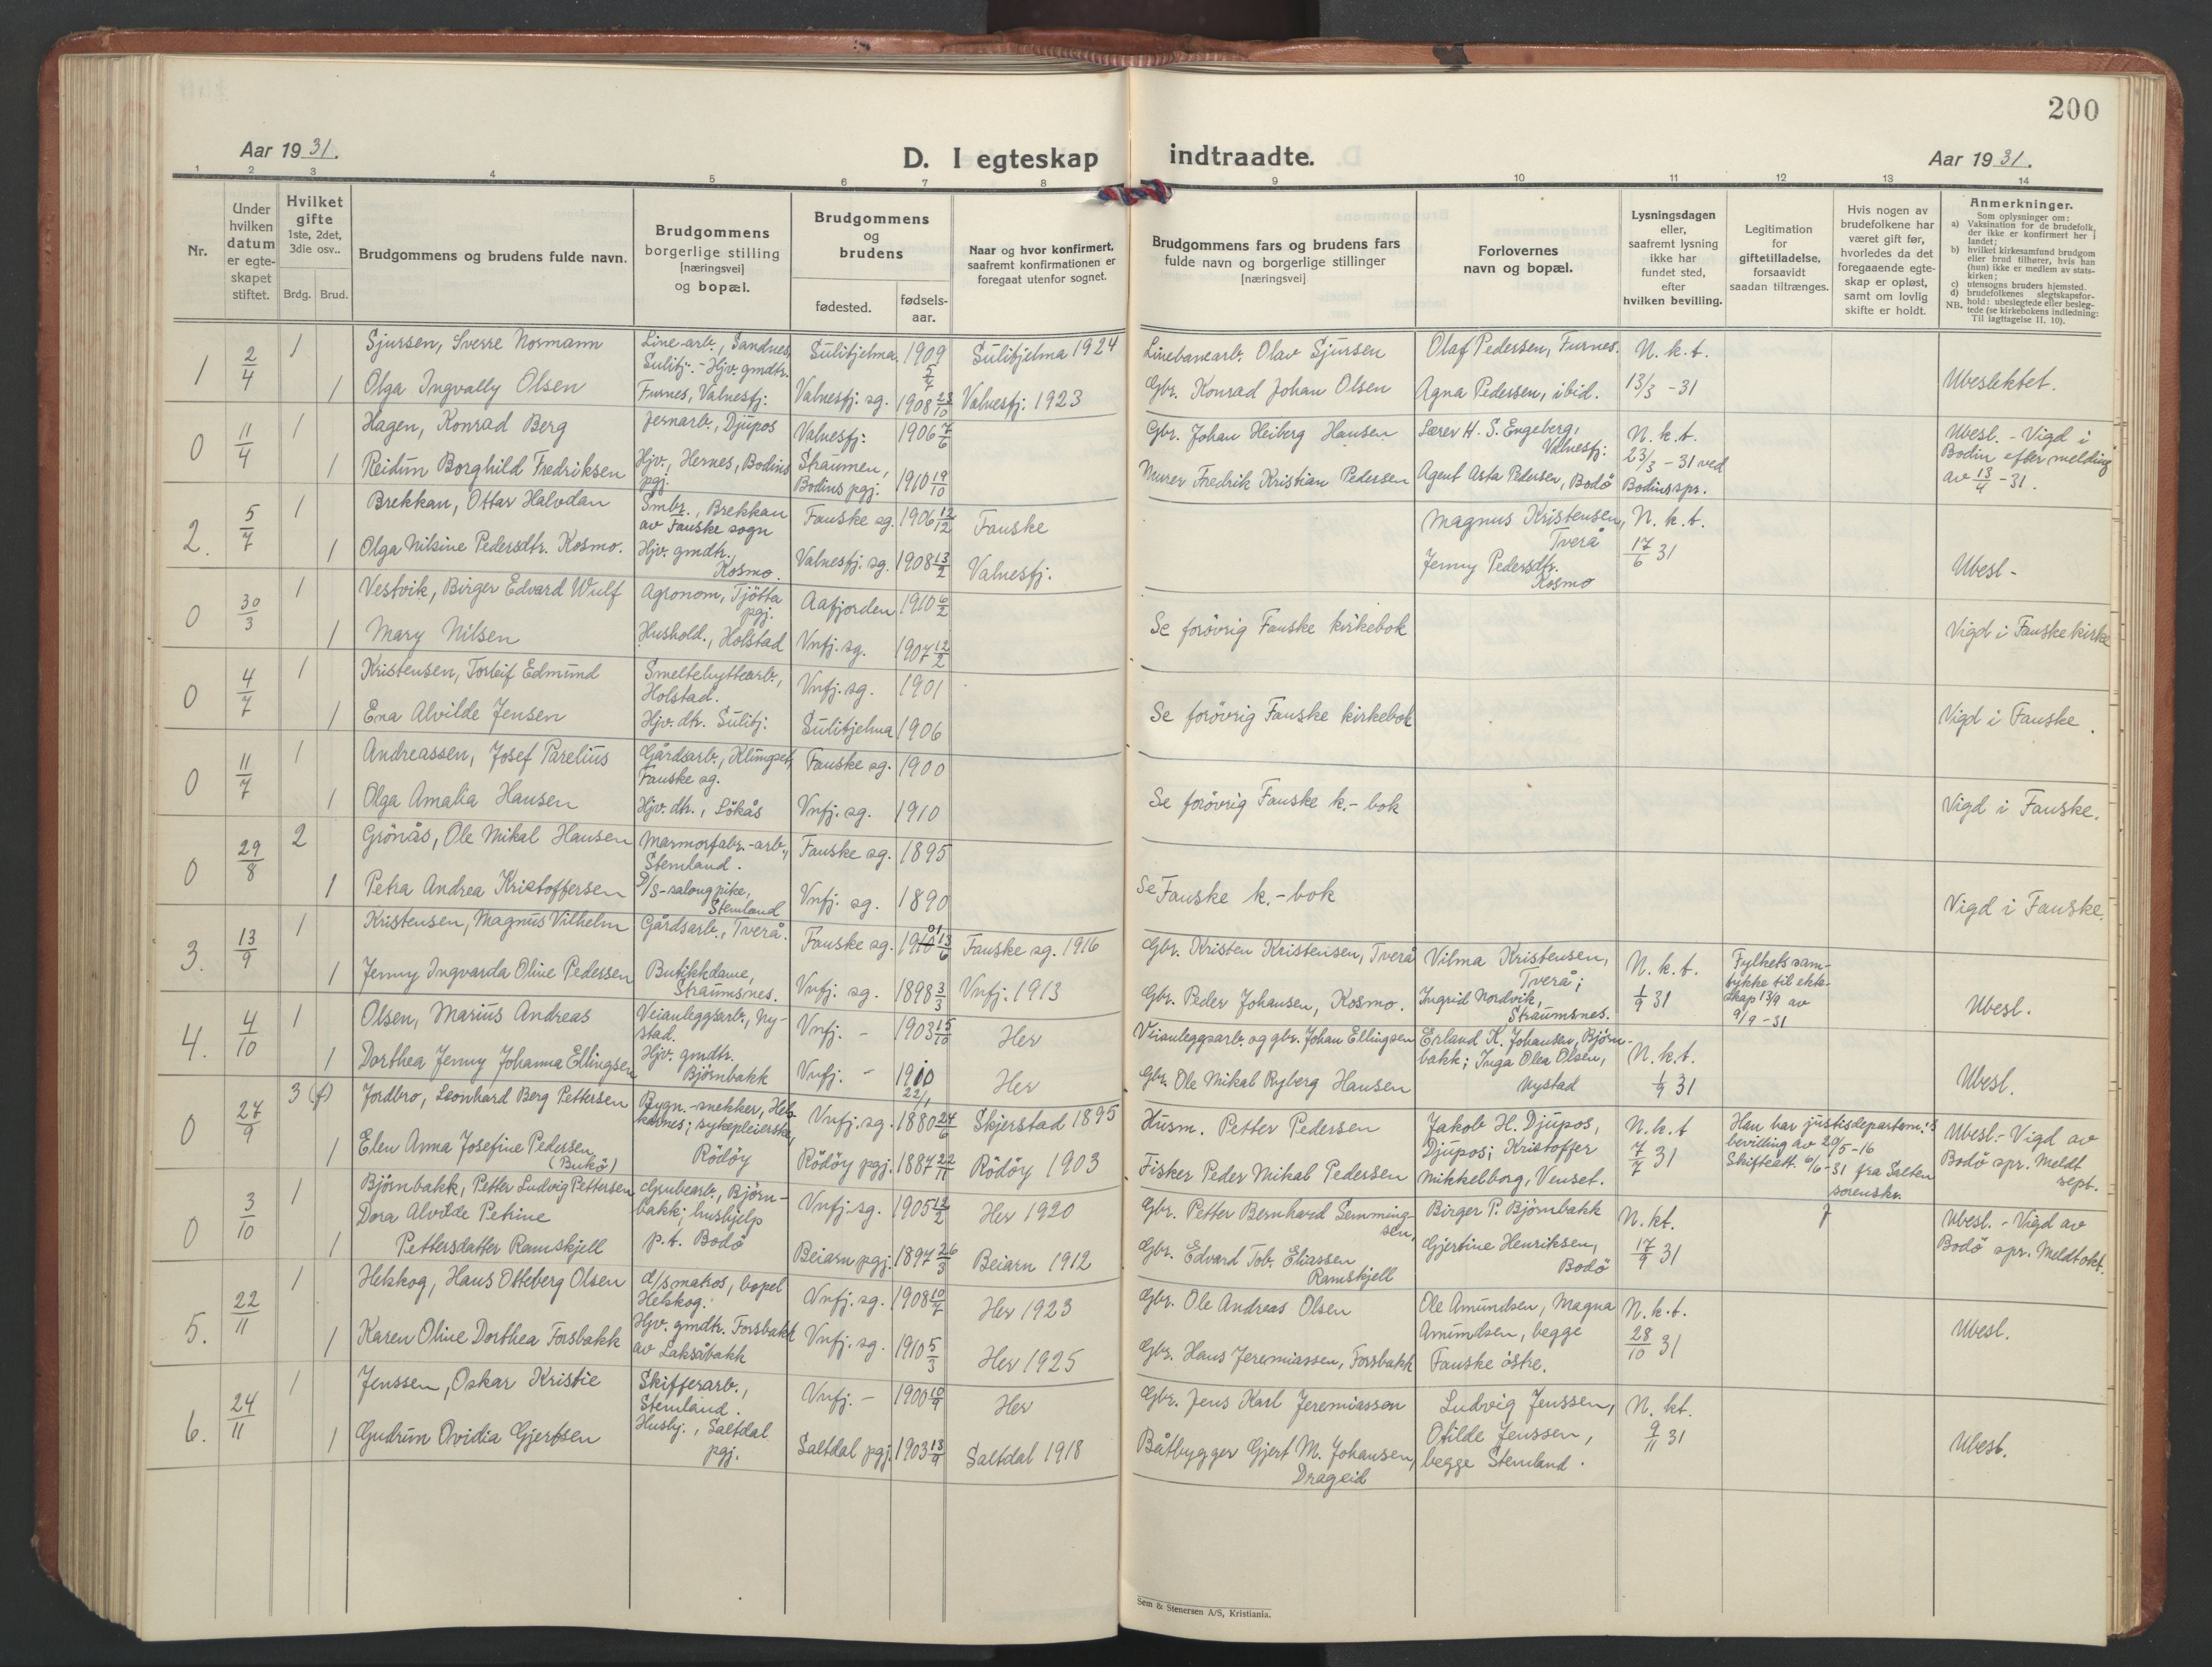 200
Aar 1931.
D. I egteskap indtraadte.
Aar 1931.
1 2 3 4 5 6 7 8 9 10 11 12 13 14
Nr.
Under hvilken datum er egte-skapet stiftet.
Hvilket gifte 1ste, 2det, 3die osv..
Brdg. Brud.
Brudgommens og brudens fulde navn.
Brudgommens borgerlige stilling [næringsvei] og bopæl.
Brudgommens og brudens
fødested.
fødsels-aar.
Naar og hvor konfirmert, saafremt konfirmationen er foregaat utenfor sognet.
Brudgommens fars og brudens fars fulde navn og borgerlige stillinger [næringsvei]
Forlovernes navn og bopæl.
Lysningsdagen eller, saafremt lysning ikke har fundet sted, efter hvilken bevilling.
Legitimation for giftetilladelse, forsaavidt saadan tiltrænges.
Hvis nogen av brudefolkene har været gift før, hvorledes da det foregaaende egte-skap er opløst, samt om lovlig skifte er holdt.
Anmerkninger.
Som oplysninger om:
a) Vaksination for de brudefolk, der ikke er konfirmert her i landet;
b) hvilket kirkesamfund brudgom eller brud tilhører, hvis han (hun) ikke er medlem av stats-kirken;
c) utensogns bruders hjemsted.
d) brudefolkenes slegtskapsfor-hold: ubeslegtede eller besleg-tede (se kirkebokens indledning: Til iagttagelse II. 10).
NB.
1 2/4 1 Sjursen, Sverre Normann Line-arb., Sandnes, Sulitj. Sulitjelma 1909 5/4 Sulitjelma 1924 Linebanearb. Olav Sjursen Olaf Pedersen, Furnes. N. k. t.
1 Olga Ingvally Olsen Hjv. gmdtr. Furnes, Valnesfj: Valnesfj: sg. 1908 23/10 Valnesfj: 1923 Gbr. Konrad Johan Olsen Agna Pedersen, ibid. 13/3 -31 Ubeslektet.
0 11/4 1 Hagen, Konrad Berg Jernarb., Djupos Valnesfj: 1906 7/6 Gbr. Johan Heiberg Hansen Lærer H. S. Engeberg, Valnesfj: N. k. t. Ubesl. - Vigd i
1 Reidun Borghild Fredriksen Hjv., Hernes, Bodins pgj. Straumen, Bodins pgj. 1910 19/10 Murer Fredrik Kristian Pedersen Agent Asta Pedersen, Bodö 23/3 - 31 ved Bodins spr. Bodin efter melding av 13/4 - 31.
2. 5/7 1 Brekkan, Ottar Halvdan Smbr., Brekkan av Fauske sogn Fauske sg. 1906 12/12 Fauske Magnus Kristensen, Tverå N. k. t.
1 Olga Nilsine Pedersdtr. Kosmo. Hjv. gmdtr., Kosmo. Valnesfj: sg. 1908 13/2 Valnesfj. Jenny Pedersdtr. Kosmo 17/6 31 Ubesl -
0 30/3 1 Vestvik, Birger Edvard Wulf Agronom, Tjötta pgj. Aafjorden 1910 6/2
1 Mary Nilsen Hushold., Holstad Vnfj. sg. 1907 12/2 Se forövrig Fauske kirkebok Vigd i Fauske kirke
0 4/7 1 Kristensen, Torleif Edmund Smeltehyttearb., Holstad. Vnfj. sg. 1901
1 Ena Alvilde Jensen Hjv. dtr. Sulitj: Sulitjelma 1906 Se forövrig Fauske kirkebok Vigd i Fauske.
0 11/7 1 Andreassen, Josef Parelius Gårdsarb., Klungset, Fauske sg. Fauske sg. 1900
1 Olga Amalia Hansen Hjv. dtr., Lökås Vnfj. sg. 1910 Se forövrig Fauske k.- bok Vigd i Fauske.
0 29/8 2 Grönås, Ole Mikal Hansen Marmorfabr.-arb., Stemland. Fauske sg. 1895
1 Petra Andrea Kristoffersen D/S-salongpike, Stemland Vnfj. sg. 1890 Se Fauske k.- bok Vigd i Fauske.
3. 13/9 1 Kristensen, Magnus Vilhelm Gårdsarb., Tverå. Fauske sg. 1901 13/6 Fauske sg. 1916 Gbr. Kristen Kristensen, Tverå Vilma Kristensen, Tverå; N. k. t. Fylkets sam-tykke til ekte-skap 13/9 av 9/9 - 31
1 Jenny Ingvarda Oline Pedersen Butikkdame, Straumsnes. Vnfj. sg. 1898 3/3 Vnfj. 1913 Gbr. Peder Johansen, Kosmo. Ingrid Nordvik, Straumsnes. 1/9 31 Ubesl.
4. 4/10 1 Olsen, Marius Andreas Veianleggsarb., Ny-stad. Vnfj. - 1903 15/10 Her Veianleggsarb. og gbr. Johan Ellingsen Erland K. Johansen, Bjørn-bakk; Inga Olea Olsen, Nystad N. k. t.
1 Dorthea Jenny Johanna Ellingsen Hjv. gmdtr. Bjørnbakk Vnfj. - 1910 22/1 Her Gbr. Ole Mikal Ryberg Hansen 1/9 31 Ubesl.
0 27/9 3 (f) Jordbro, Leonhard Berg Pettersen Bygn.-snekker, sykepleierske, Vnfj. sg. 1880 24/6 Skjerstad 1895 Husm. Petter Pedersen Jakob H. Djupos, Djupos; Kristoffer N. k. t Han har justisdepartem: s bevilling av 29/5-16 Ubesl.- Vigd av
1 Elen Anna Josefine Pedersen (Bukö) Rödöy Rödöy pgj. 1887 22/11 Rödöy 1903 Fisker Peder Mikal Pedersen Mikkelborg, Venset. 7/7 31 Skifteatt. 6/6-31 fra Salten sorenskr. Bodö spr. Meldt sept.
0 3/10 1 Bjørnbakk, Petter Ludvig Pettersen Grubearb., Bjørn-bakk; hushjelp Vnfj. sg. 1905 12/2 Her 1920 Gbr. Petter Bernhard Semming-sen, Birger P. Bjørnbakk N. kt. Ubesl. - Vigd av
1 Dora Alvilde Petrine Pettersdatter Ramskjell p.t. Bodö Beiarn pgj. 1897 26/3 Beiarn 1912 Gbr. Edvard Tob. Eliassen Ramskjell Gjertine Henriksen, Bodö 17/9 31 Bodö spr. Meldt okt.
5. 22/11 1 Helskog, Hans Otteberg Olsen d/s matros, bopel Helskog. Vnfj. sg. 1908 10/7 Her 1923 Gbr. Ole Andreas Olsen Ole Amundsen, Magna N. k. t.
1 Karen Oline Dorthea Forsbakk Hjv. gmdtr. Forsbakk av Laksåbakk Vnfj. sg. 1910 5/3 Her 1925 Gbr. Hans Jeremiassen, Forsbakk Amundsen, begge Fauske östre. 28/10 31 Ubesl.
6. 24/11 1 Jenssen, Oskar Kristie Skifferarb., Stemland. Vnfj. - 1900 10/9 Her Gbr. Jens Karl Jeremiassen Ludvig Jenssen, N. kt.
1 Gudrun Ovidia Gjertsen Hushj., Saltdal pgj. Saltdal pgj. 1903 13/9 Saltdal 1918 Båtbygger Gjert M. Johansen, Drageid Otilde Jenssen, begge Stemland. 9/11 31 Ubesl.
Sem & Stenersen A/S, Kristiania.